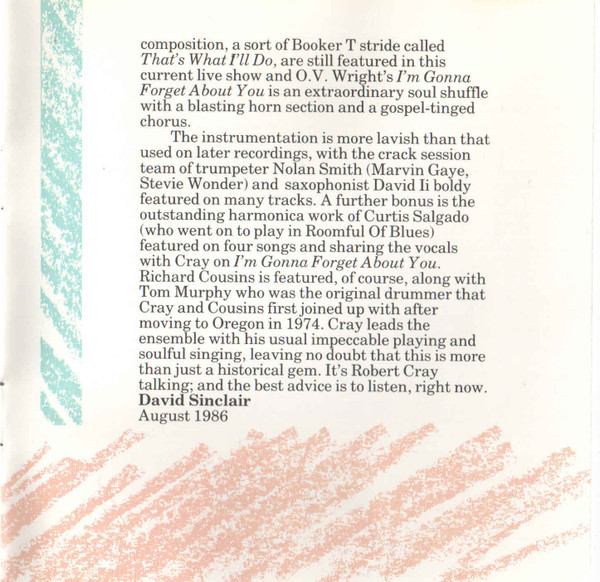 composition, a sort of Booker T stride called
That's What I'll Do, are still featured in this
current live show and O.V. Wright's I'm Gonna
Forget About You is an extraordinary soul shuffle
with a blasting horn section and a gospel-tinged
chorus.
The instrumentation is more lavish than that
used on later recordings, with the crack session
team of trumpeter Nolan Smith (Marvin Gaye,
Stevie Wonder) and saxophonist David Ii boldy
featured on many tracks. A further bonus is the
outstanding harmonica work of Curtis Salgado
(who went on to play in Roomful Of Blues)
featured on four songs and sharing the vocals
with Cray on I'm Gonna Forget About You.
Richard Cousins is featured, of course, along with
Tom Murphy who was the original drummer that
Cray and Cousins first joined up with after
moving to Oregon in 1974. Cray leads the
ensemble with his usual impeccable playing and
soulful singing, leaving no doubt that this is more
than just a historical gem. It's Robert Cray
talking; and the best advice is to listen, right now.
David Sinclair
August 1986